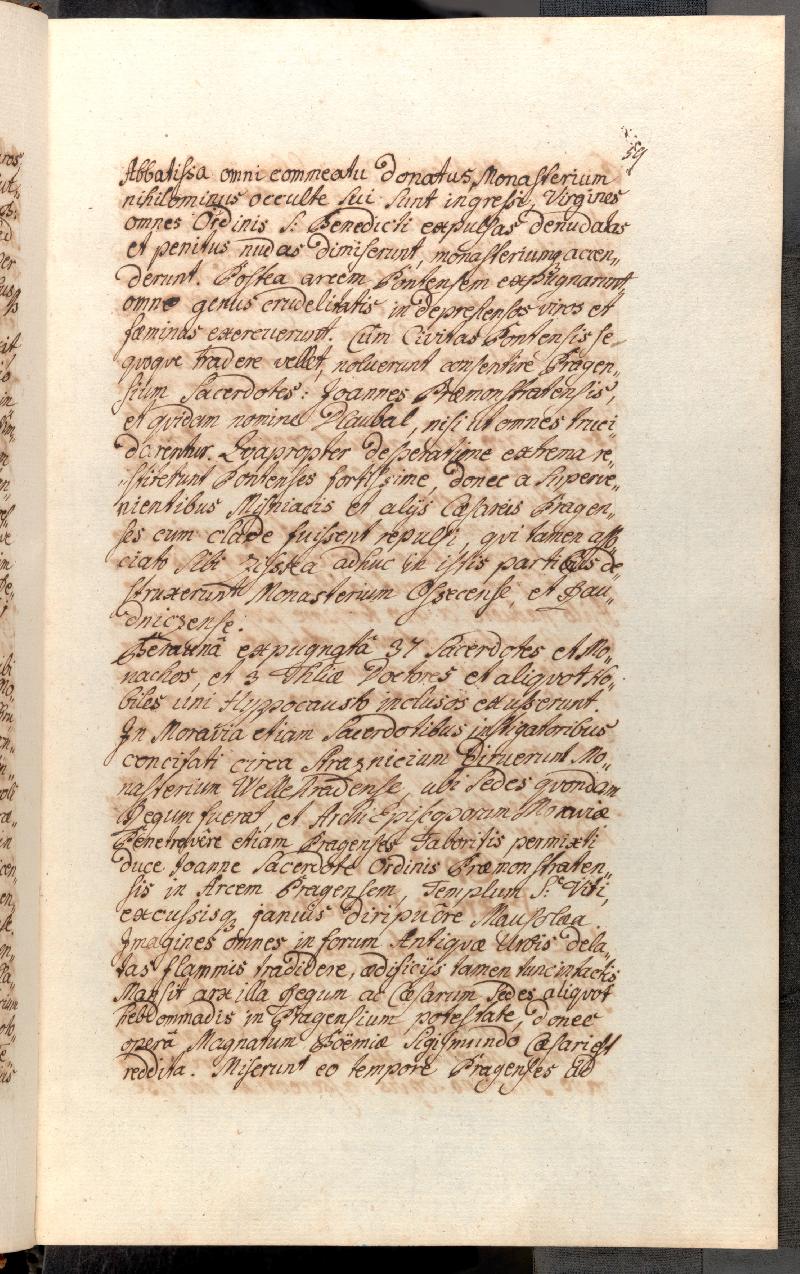 59
Abbatissa omni commeatu donatus, Monasterium
nihilominus occulte sui sunt ingressi, Virgines
omnes Ordinis S: Benedicti expulsas denudatas
et penitus nudas dimiserunt, monasteriumq accen„
derunt. Postea arcem Pontensem expugnarunt,
omne genus crudelitatis in depressensos viros et
fæminas exercuerunt. Cùm Civitas Pontensis se
quoqve tradere vellet, noluerunt consentire Pragen„
sium Sacerdotes: Joannes Præmonstratensis,
et qvidam nomine Plaubal, nisi ut omnes truci„
darentur. Qvapropter desperatione extrema re„
stiterunt Pontenses fortissime, donec a superve„
nientibus Misniacis et alijs Cæsareis Pragen„
ses cum clade fuissent repulsi, qvi tamen asso„
ciato sibi Zisska adhuc in istis partibus de„
struxerunt Monasterium Ossecense, et Bau„
dnicense.
Beraunâ expugnatâ 37 Sacerdotes et Mo„
nachos, et 3 Thliæ Doctores et aliqvot No„
biles uni Hyppocausto inclusos exusserunt.
In Moravia etiam Sacerdotibus instigatoribus
concitati circa Straznicium Diruerunt Mo„
nasterium Wellestradense, ubi sedes qvondam
Regum fuerat, et ArchiEpiscoporum Moraviæ
Penetravêre etiam Pragenses Taboritis permixti
duce Joanne Sacerdote Ordinis Præmonstraten„
sis in Arcem Pragensem, Templum S. Viti,
excussisq januis diripuêre Mausolæa
Imagines omnes in forum Antiqvæ Urbis dela„
tas flammis tradidere, ædificijs tamen tunc intactis
Mansit arx illa Regum ac Cæsarum sedes aliqvot
hebdommadis in Pragensium potestate, donec
operâ Magnatum Boëmiæ Sigismundo Cæsari est
reddita. Miserunt eo tempore Pragenses ad